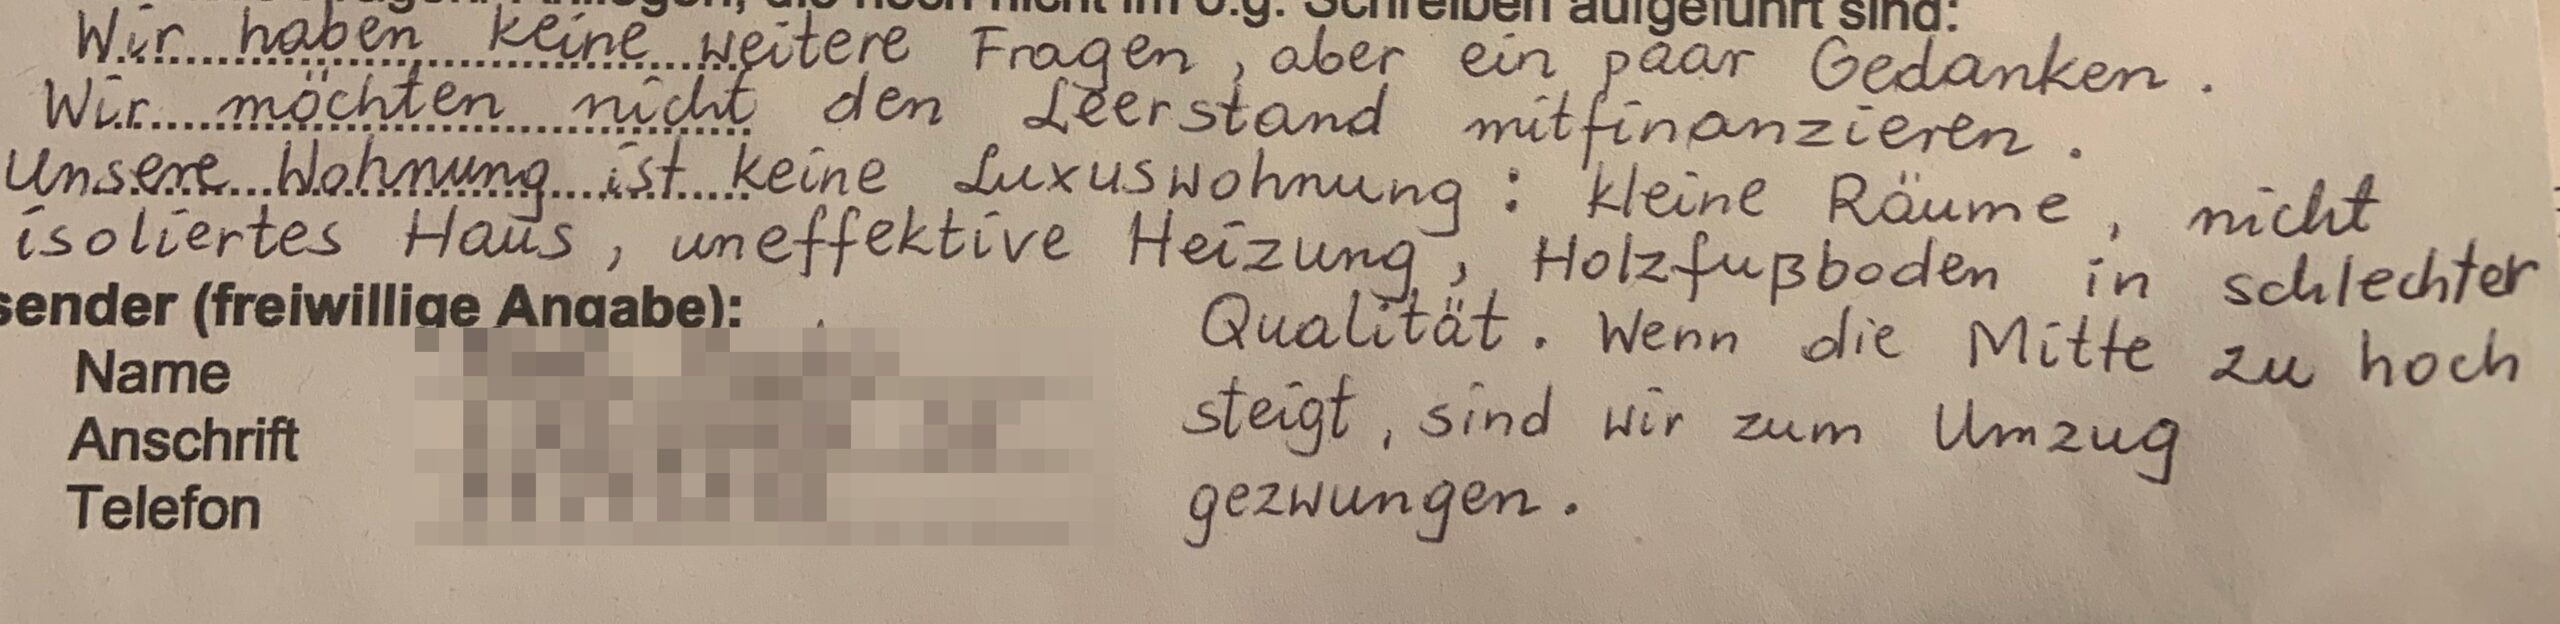 die noch nicht im o.g. Schreiben aufgeführt sind:
Wir haben keine weitere Fragen, aber ein paar Gedanken.
Wir möchten nicht den Leerstand mitfinanzieren.
Unsere Wohnung ist keine Luxuswohnung: kleine Räume, nicht
isoliertes Haus, uneffektive Heizung, Holzfußboden in schlechter
Qualität. Wenn die Mitte zu hoch
steigt, sind wir zum Umzug
gezwungen.
sender (freiwillige Angabe):
Name
Anschrift
Telefon